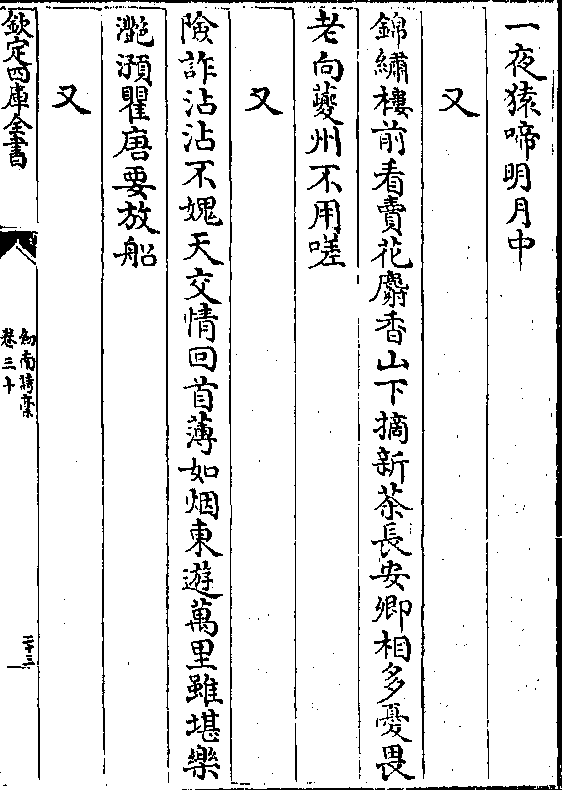 一夜猿啼明月中
又
錦繡樓前看賣花麝香山下摘新茶長安卿相多憂畏
老向夔州不用嗟
又
險詐沾沾不媿天交情回首薄如烟東遊萬里雖堪樂
灔澦瞿唐要放船
又
欽定四庫全書
劒南詩藁
卷三十
二十三